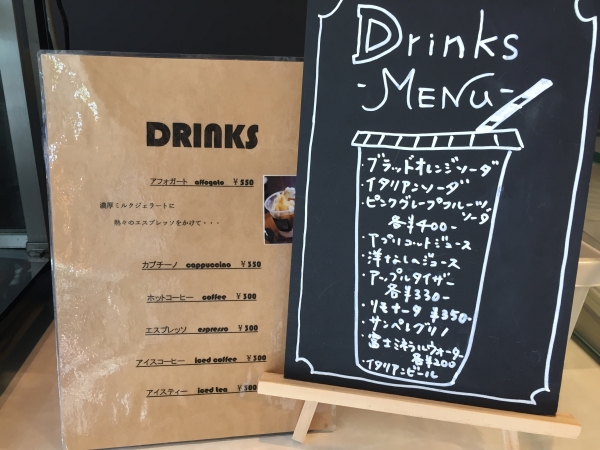 DRINKS
アフォガート affogato ￥550
濃厚ミルクジェラートに
熱々のエスプレッソをかけて・・・
カプチーノ cappuccino ￥350
ホットコーヒー coffee ￥300
エスプレッソ espresso ￥300
アイスコーヒー iced coffee ￥300
アイスティー iced tea ￥300
Drinks
-MENU-
・ブラッドオレンジソーダ
・イタリアンソーダ
・ピンクグレープフルーツソーダ
各￥400-
・アプリコットジュース
・洋なしのジュース
・アップルタイザー
各￥330-
・リモナータ ￥350-
・サンペレグリノ
・富士ミネラルウォーター
各￥200
・イタリアンビール